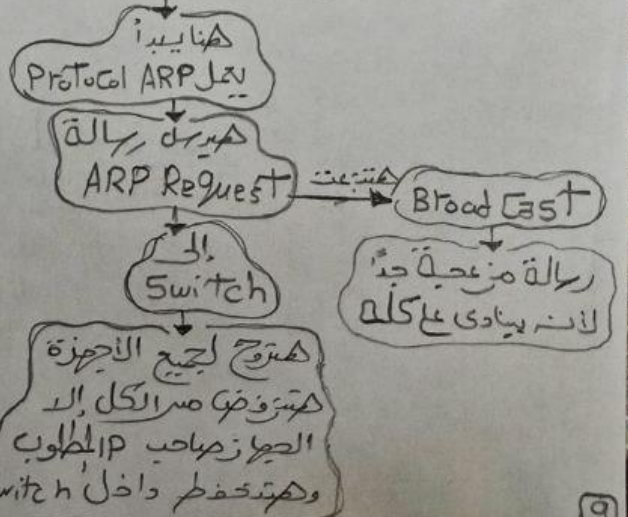 هنا يبدأ
يعمل Protocol ARP
هيرسل رسالة
ARP Request
هتتبعت
BroadCast
رسالة مزعجة جدًا
لأنه بينادى على كله
إلى
Switch
هتروح لجميع الأجهزة
هتترفض من الكل إلا
الجهاز صاحب IP المطلوب
وهتتحفظ داخل witch
9